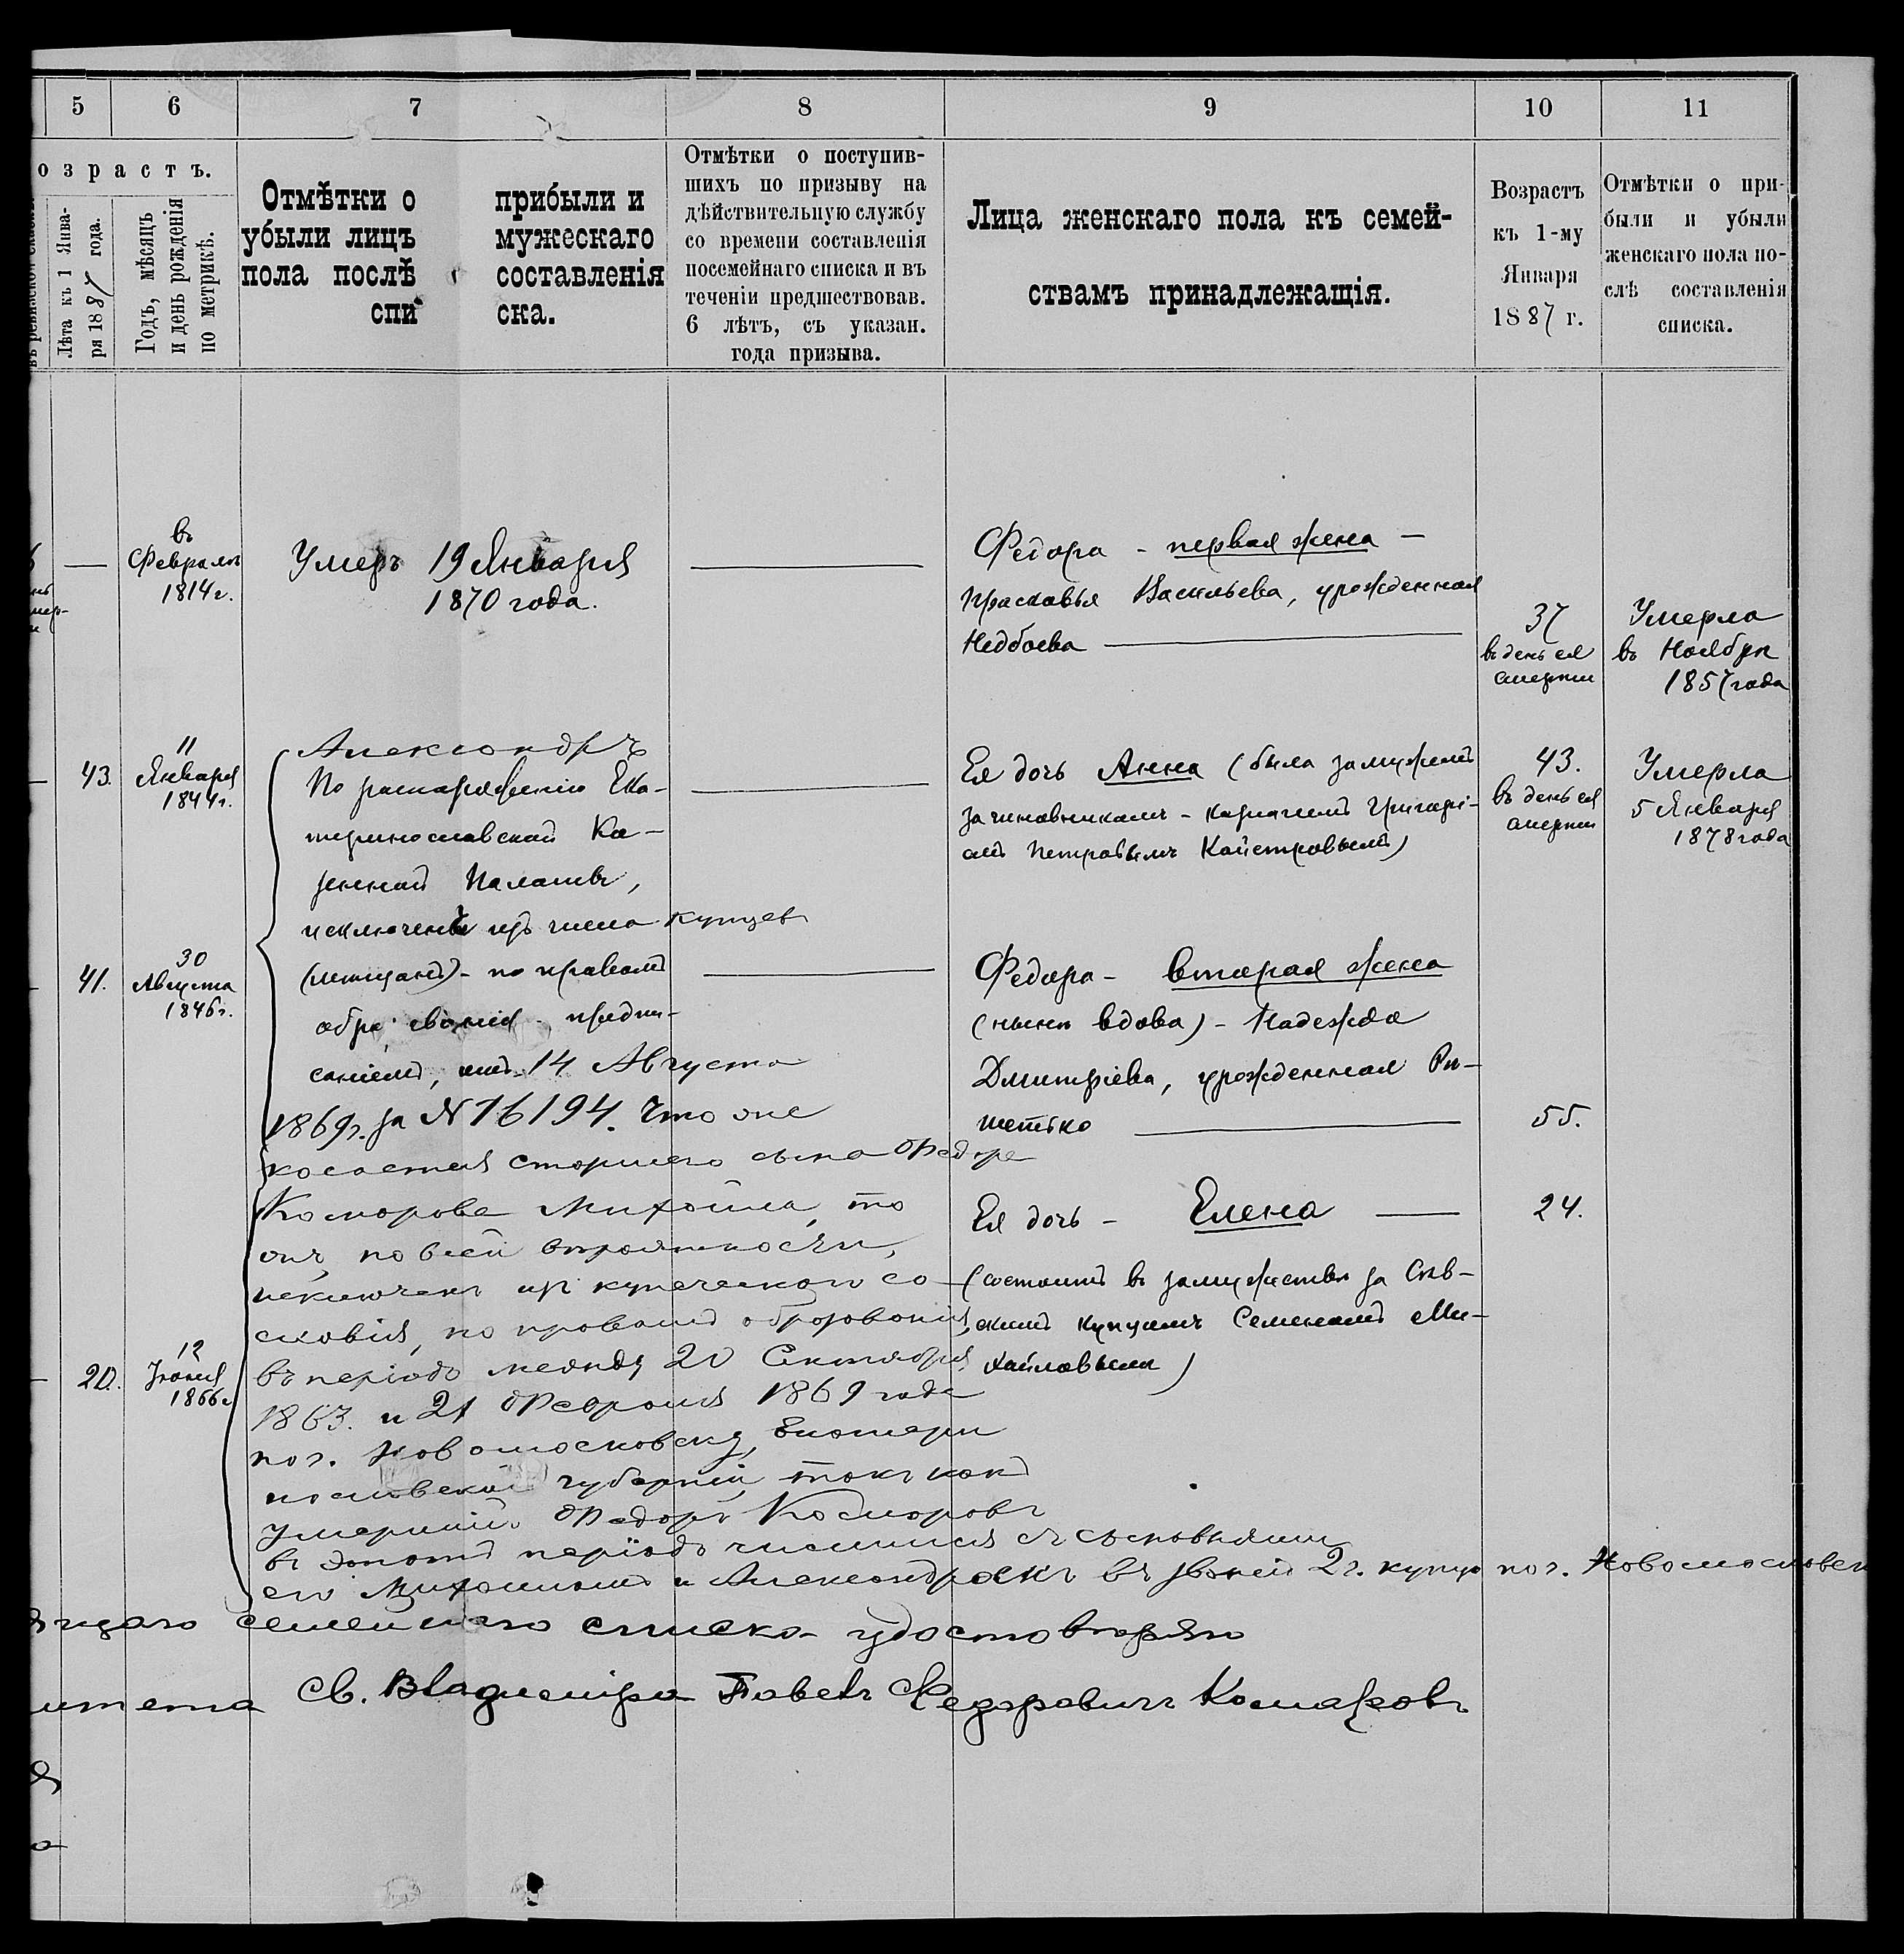 5 6 7 8 9 10 11
озрастъ.
Лѣта къ 1 Янва-
ря 1887 года.
Годъ, мѣсяцъ
и день рожденія
по метрикѣ.
Отмѣтки о прибыли и
убыли лицъ мужескаго
пола послѣ составленія
спи ска.
Отмѣтки о поступив-
шихъ по призыву на
дѣйствительную службу
со времени составленія
посемейнаго списка и въ
теченіи предшествовав.
6 лѣтъ, съ указан.
года призыва.
Лица женскаго пола къ семей-
ствамъ принадлежащія.
Возрастъ
къ 1-му
Января
1887 г.
Отмѣтки о при-
были и убыли
женскаго пола по-
слѣ составленія
списка.
—
въ
Февралѣ
1814 г.
Умеръ 19 Января
1870 года.
Федора - первая жена —
Прасковья Васильева, урожденная
Недбаева
37
въ день ея
смерти
Умерла
въ Ноябрѣ
1857 года
43.
11
Января
1844 г.
Александръ
По распоряженію Ека-
теринославской Ка-
зенной Палаты,
исключенъ изъ числа купцевъ
(мѣщанъ) - по правамъ
образованія, предпи-
саніемъ, отъ 14 Августа
1869 г. за № 16194. Что же
косается старшего сына Федора
Комарова Михаила, то
онъ, по всей вѣроятности,
исключенъ изъ купеческаго со-
словія, по правамъ образованія,
въ періодъ между 20 Сентября
1863. и 21 Февраля 1869 года
по г. Новомосковску, Екатери
нославской губерніи, такъ какъ
умершій Федоръ Комаровъ
въ этотъ періодъ числился съ сыновьями
его Михаиломъ и Александромъ въ званіи 2 г. купца по г. Новомосковск
Ея дочь Анна (была замужемъ
за чиновникомъ - казначеемъ Григорі-
емъ Петровымъ Кайстровымъ)
43.
въ день ея
смерти
Умерла
5 Января
1878 года
41.
30
Августа
1846 г.
Федора - вторая жена
(нынѣ вдова) - Надежда
Дмитріева, урожденная Рѣ-
шетько
55.
Ея дочь - Елена —
24.
(состоитъ въ замужествѣ за Слав-
скимъ купцомъ Семеномъ Ми-
хайловымъ)
20.
12
Іюня
1866 г.
щаго семейнаго списка удостовѣряю
итета Св. Владиміра Павелъ Федоровичъ Комаровъ